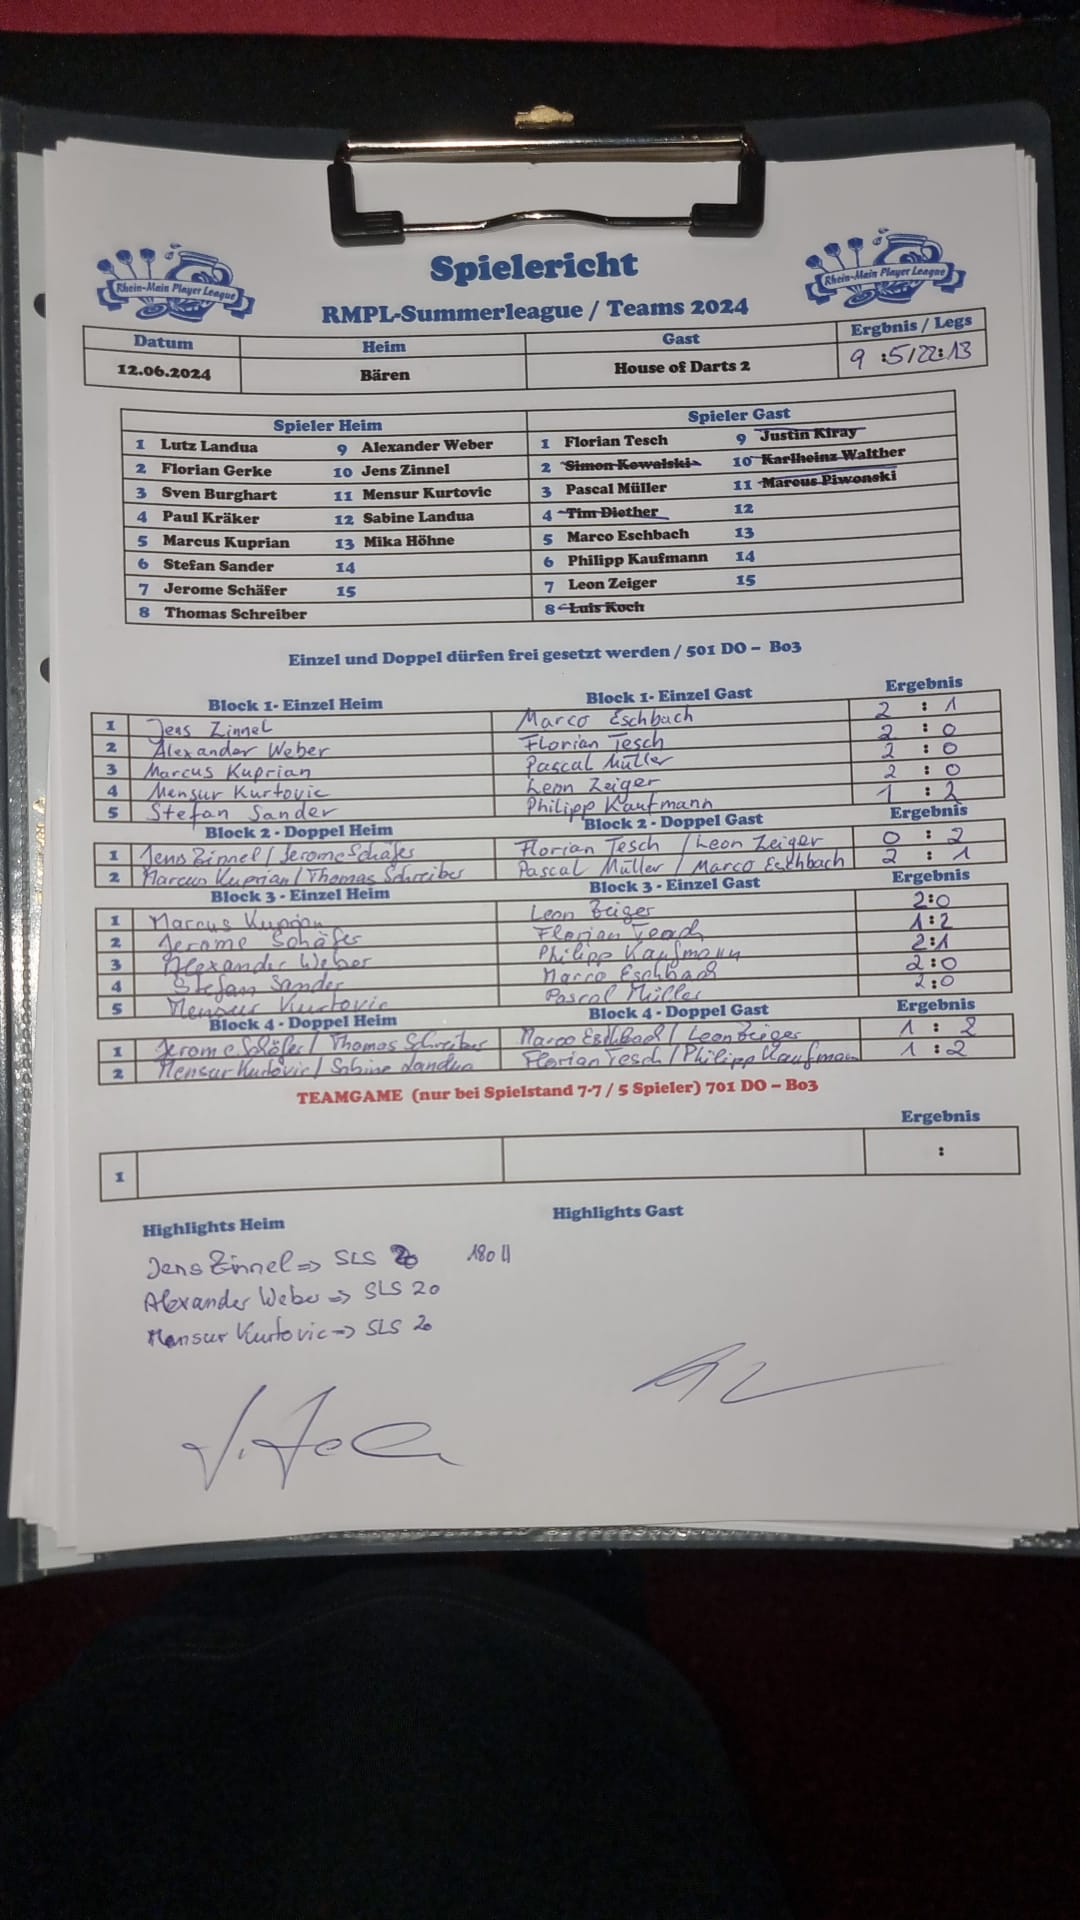 Rhein-Main Player League
Rhein-Main Player League
Spielericht
RMPL-Summerleague / Teams 2024
Datum Heim Gast Ergbnis / Legs
12.06.2024 Bären House of Darts 2 9 :5/22:13
Spieler Heim Spieler Gast
1 Lutz Landua 9 Alexander Weber 1 Florian Tesch 9 Justin Kiray
2 Florian Gerke 10 Jens Zinnel 2 Simon Kowalski 10 Karlheinz Walther
3 Sven Burghart 11 Mensur Kurtovic 3 Pascal Müller 11 Marcus Piwonski
4 Paul Kräker 12 Sabine Landua 4 Tim Diether 12
5 Marcus Kuprian 13 Mika Höhne 5 Marco Eschbach 13
6 Stefan Sander 14 6 Philipp Kaufmann 14
7 Jerome Schäfer 15 7 Leon Zeiger 15
8 Thomas Schreiber 8 Luis Koch
Einzel und Doppel dürfen frei gesetzt werden / 501 DO – Bo3
Block 1- Einzel Heim Block 1- Einzel Gast Ergebnis
1 Jens Zinnel Marco Eschbach 2 : 1
2 Alexander Weber Florian Tesch 2 : 0
3 Marcus Kuprian Pascal Müller 2 : 0
4 Mensur Kurtovic Leon Zeiger 2 : 0
5 Stefan Sander Philipp Kaufmann 1 : 2
Block 2 - Doppel Heim Block 2 - Doppel Gast Ergebnis
1 Jens Zinnel / Jerome Schäfer Florian Tesch / Leon Zeiger 0 : 2
2 Marcus Kuprian / Thomas Schreiber Pascal Müller / Marco Eschbach 2 : 1
Block 3 - Einzel Heim Block 3 - Einzel Gast Ergebnis
1 Marcus Kuprian Leon Zeiger 2:0
2 Jerome Schäfer Florian Tesch 1:2
3 Alexander Weber Philipp Kaufmann 2:1
4 Stefan Sander Marco Eschbach 2:0
5 Mensur Kurtovic Pascal Müller 2:0
Block 4 - Doppel Heim Block 4 - Doppel Gast Ergebnis
1 Jerome Schäfer / Thomas Schreiber Marco Eschbach / Leon Zeiger 1 : 2
2 Mensur Kurtovic / Sabine Landua Florian Tesch / Philipp Kaufmann 1 : 2
TEAMGAME (nur bei Spielstand 7-7 / 5 Spieler) 701 DO – Bo3
Ergebnis
1 :
Highlights Heim Highlights Gast
Jens Zinnel => SLS 20 180 II
Alexander Weber => SLS 20
Mensur Kurtovic => SLS 20